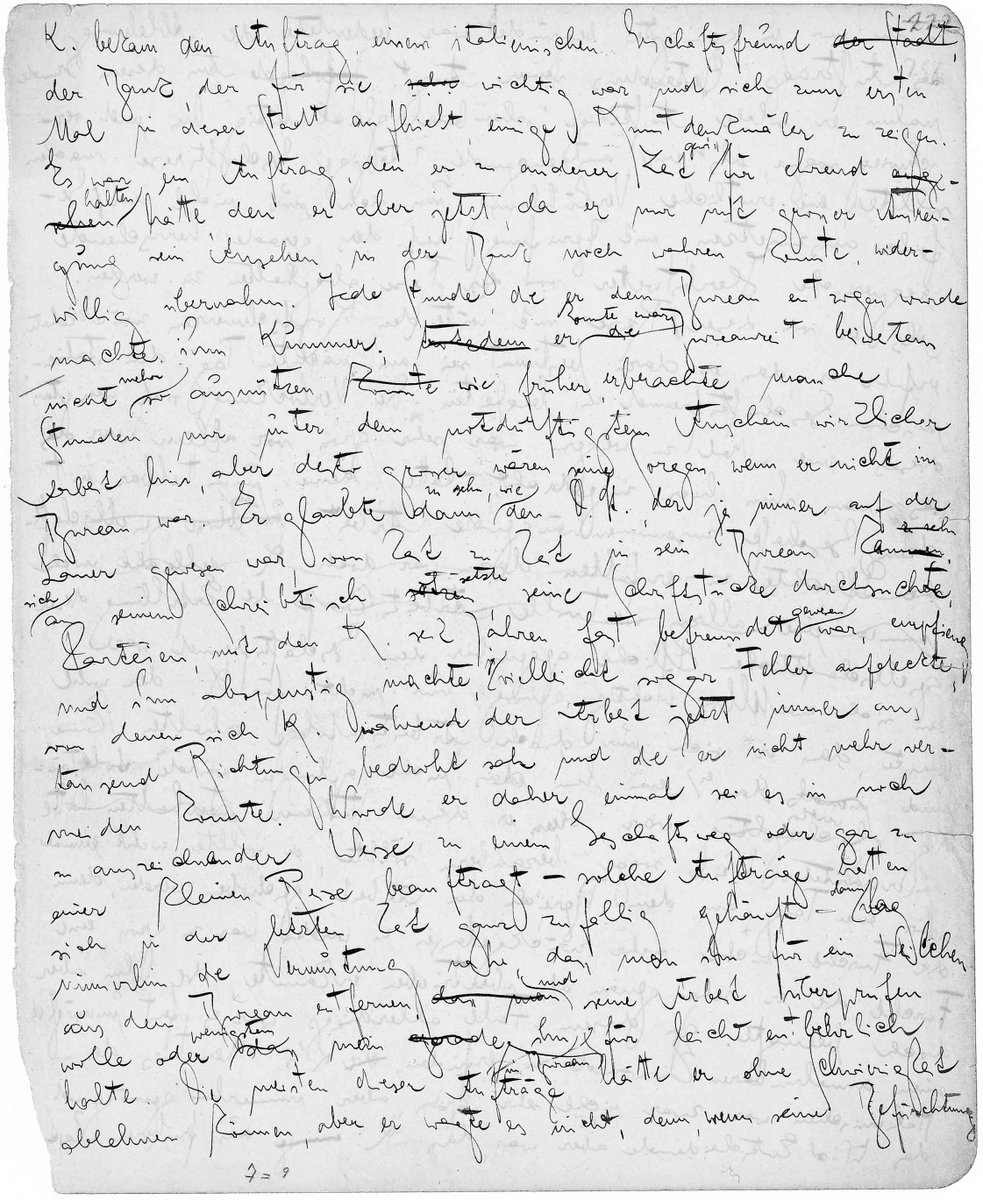 K. bekam den Auftrag, einem italienischen Geschäftsfreund der Stadt,
der Bank, der für sie sehr wichtig war und sich zum ersten
Mal in dieser Stadt aufhielt, einige Kunstdenkmäler zu zeigen.
Es war ein Auftrag, den er zu anderer Zeit gewiß für ehrend ange-
sehen halten hätte den er aber jetzt, da er nur mit grosser Anstren-
gung sein Ansehen in der Bank noch wahren konnte, wider-
willig übernahm. Jede Stunde, die er dem Bureau entzogen wurde
machte ihm Kummer; trotzdem er konnte zwar die Bureauzeit beiweitem
nicht mehr so ausnützen konnte wie früher, er brachte manche
Stunden nur unter dem notdürftigsten Anschein wirklicher
Arbeit hin, aber desto grösser waren seine Sorgen, wenn er nicht im
Bureau war. Er glaubte dann zu sehn, wie den D. St., der ja immer auf der
Lauer gewesen war, von Zeit zu Zeit in sein Bureau kommen zu sehn
sich an seinen Schreibtisch setzte, seine Schriftstücke durchsuchte,
Parteien, mit denen K. seit Jahren fast befreundet gewesen war, empfieng
und ihm abspenstig machte, vielleicht sogar Fehler aufdeckte,
von denen sich K. während der Arbeit jetzt immer aus
tausend Richtungen bedroht sah und die er nicht mehr ver-
meiden konnte. Wurde er daher einmal sei es in noch
so auszeichnender Weise zu einem Geschäftsweg oder gar zu
einer kleinen Reise beauftragt – solche Aufträge hatten
sich in der letzten Zeit ganz zufällig gehäuft – dann lag
immerhin die Vermutung nahe, dass man ihn für ein Weilchen
aus dem Bureau entfernen, und seine Arbeit überprüfen
wolle oder wenigstens man gerade ihn im Bureau für leicht entbehrlich
halte. Die meisten dieser Aufträge hätte er ohne Schwierigkeit
ablehnen können, aber er wagte es nicht, denn, wenn seine Befürchtung